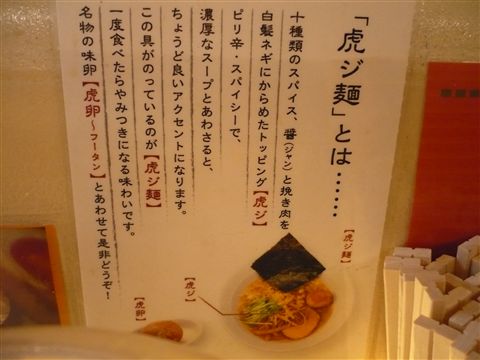 「虎ジ麺」とは……
十種類のスパイス、醤(ジャン)と挽き肉を
白髪ネギにからめたトッピング【虎ジ】
ピリ辛・スパイシーで、
濃厚なスープとあわさると、
ちょうど良いアクセントになります。
この具がのっているのが【虎ジ麺】
一度食べたらやみつきになる味わいです。
名物の味卵【虎卵～フータン】とあわせて是非どうぞ！
【虎ジ麺】
【虎ジ】
【虎卵】